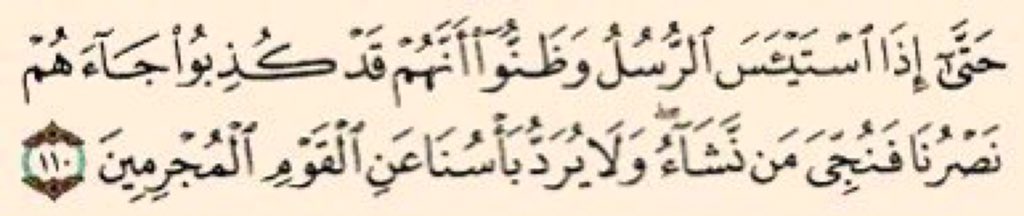 حَتَّىٰٓ إِذَا ٱسْتَيْـَٔسَ ٱلرُّسُلُ وَظَنُّوٓاْ أَنَّهُمْ قَدْ كُذِبُواْ جَآءَهُمْ
نَصْرُنَا فَنُجِّىَ مَن نَّشَآءُ ۖ وَلَا يُرَدُّ بَأْسُنَا عَنِ ٱلْقَوْمِ ٱلْمُجْرِمِينَ ١١٠